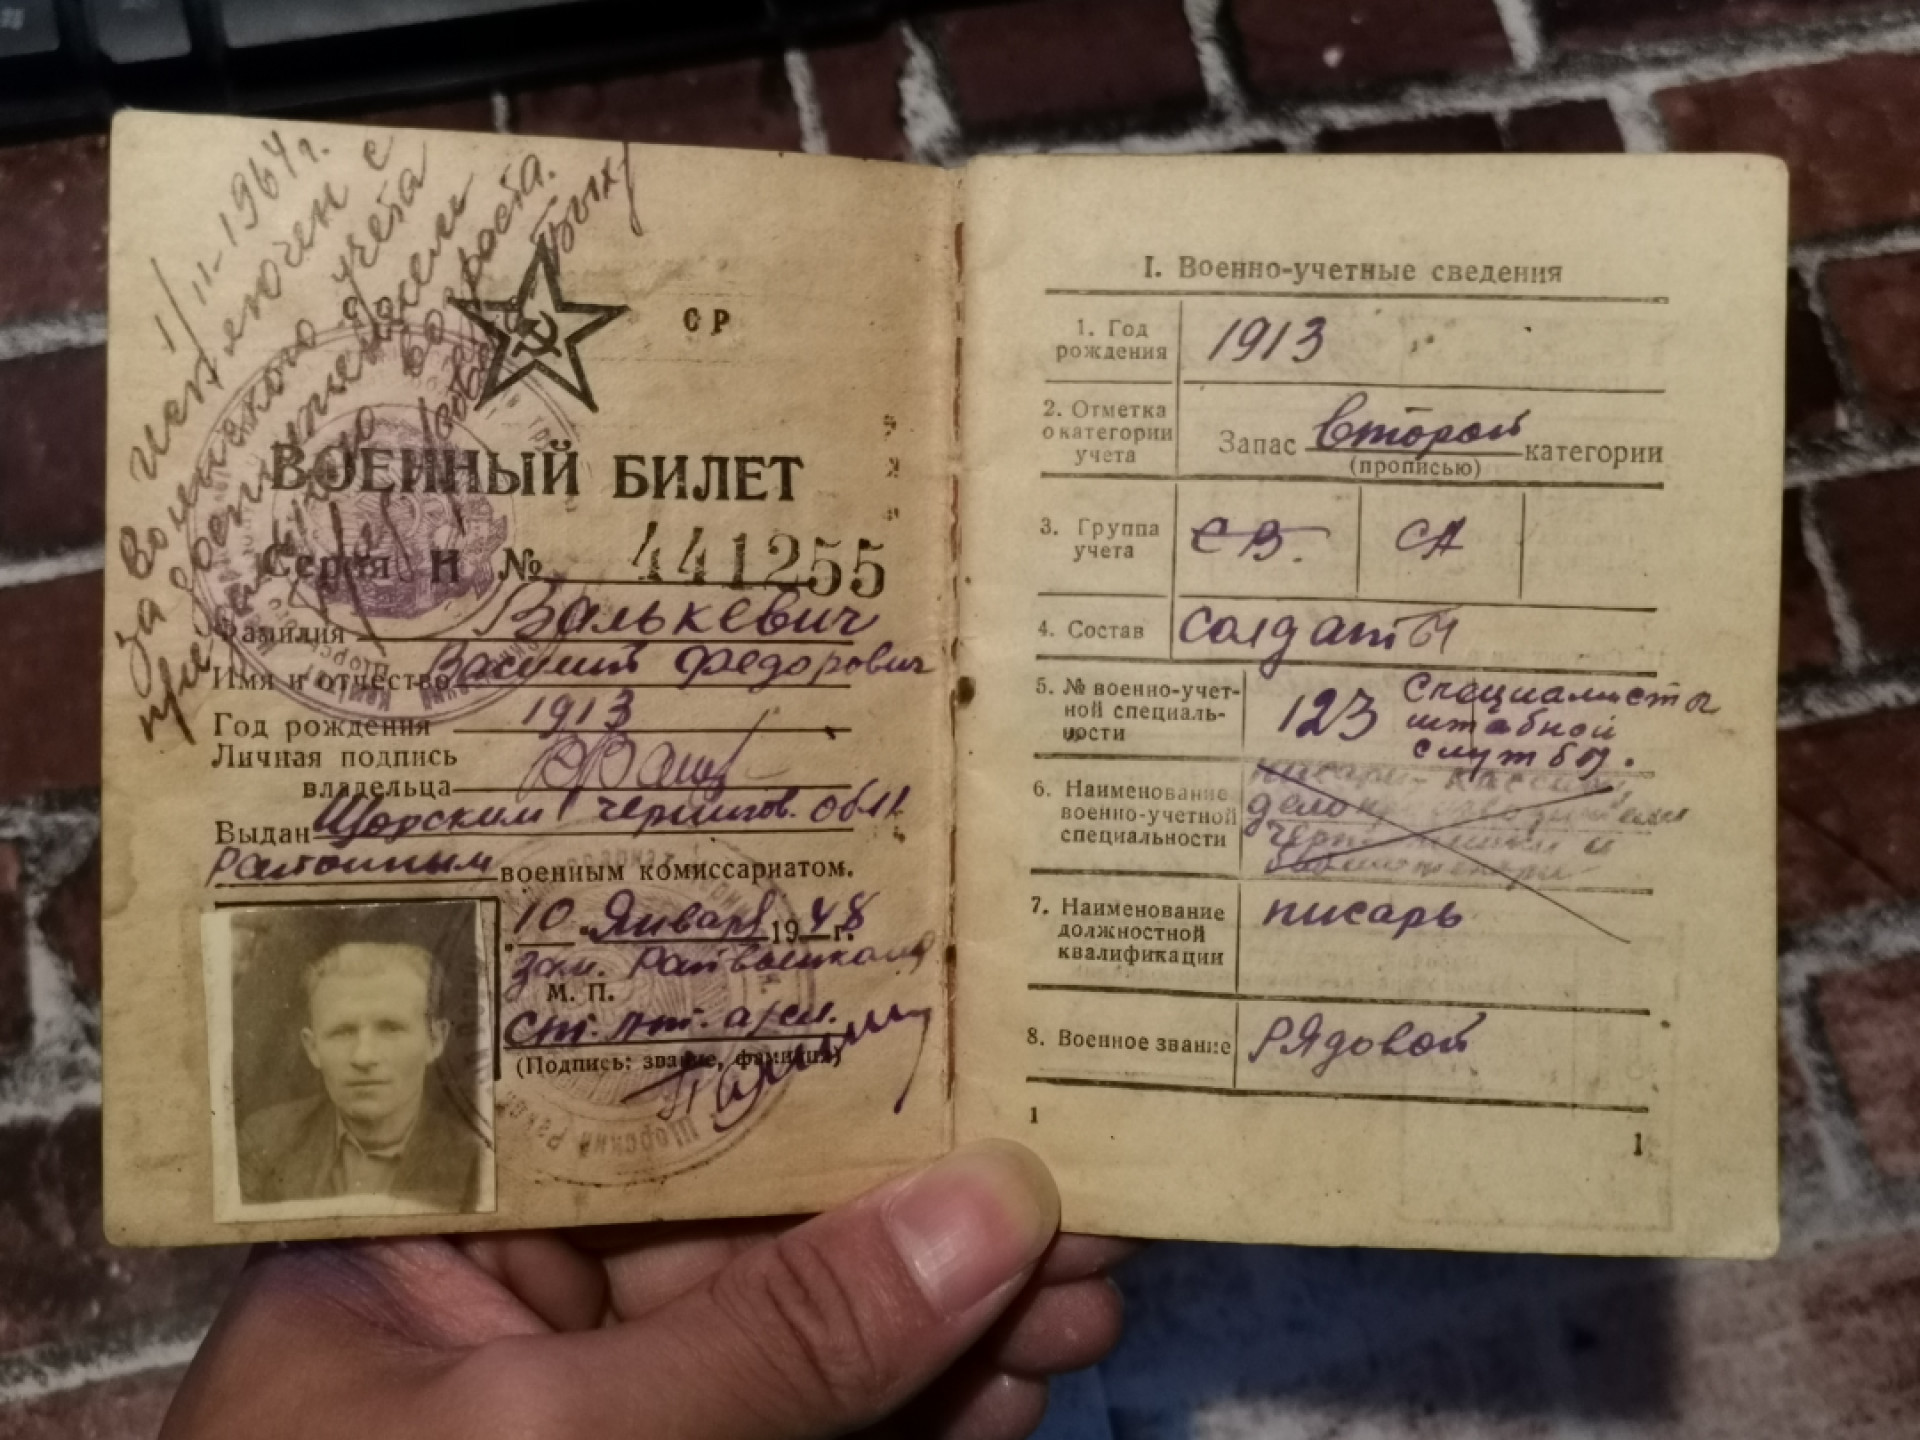 1/II-1964 г.
исключен с
воинского учета
за достижением
предельного возраста.
СР
ВОЕННЫЙ БИЛЕТ
Серия Н № 441255
Фамилия Валькевич
Имя и отчество Василий Федорович
Год рождения 1913
Личная подпись
владельца
Выдан Щорским Чернигов. обл.
Районным военным комиссариатом.
"10" Января 1948 г.
Зам. Райвоенкома
М. П.
Ст. лт. а/сл.
(Подпись: звание, фамилия)
I. Военно-учетные сведения
1. Год
рождения
1913
2. Отметка
о категории
учета
Запас второй категории
(прописью)
3. Группа
учета
СВ.
СА
4. Состав
солдаты
5. № военно-учет-
ной специаль-
ности
123 Специалисты
штабной
службы.
6. Наименование
военно-учетной
специальности
7. Наименование
должностной
квалификации
писарь
8. Военное звание
рядовой
1
1